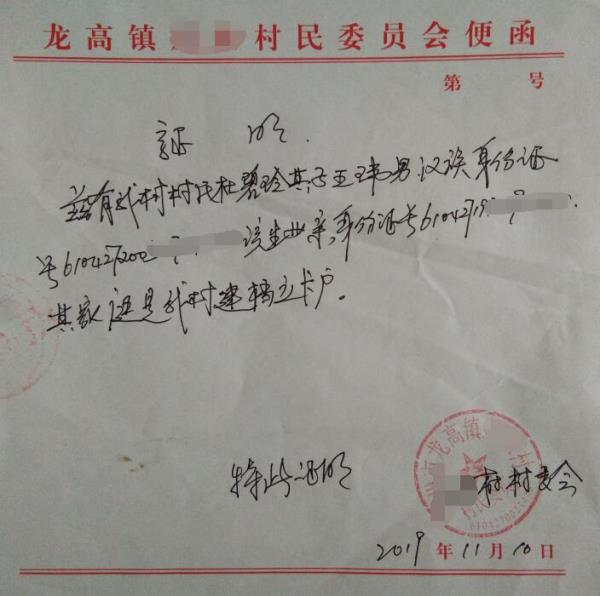 龙高镇 村民委员会便函
第 号
证 明
兹有我村村民杜碧玲其子王玮男.汉族身份证
号610427200 该生母亲,身份证号61042719
其家庭是我村建档立卡户。
特此证明
龙高镇
村村委会
2019年11月10日